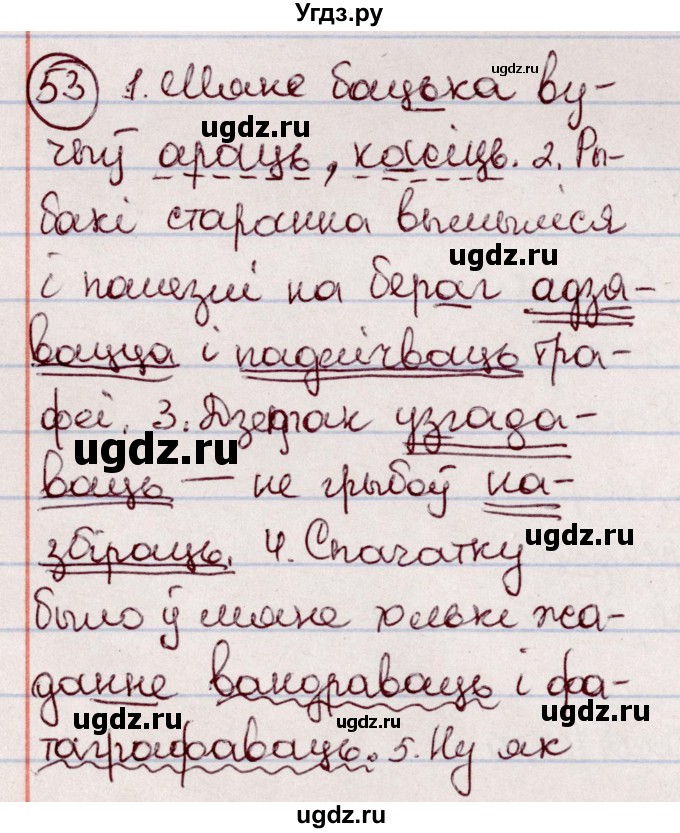 Угдз.ру
53 1. Мяне бацька ву-
чыў араць, касіць. 2. Ры-
бакі старанна вымыліся
і палезлі на бераг адзя-
вацца і падлічваць тра-
феі. 3. Дзед, так узгада-
ваць — не грыбоў на-
збіраць. 4. Спачатку
было ў мяне толькі жа-
данне вандраваць і фа-
таграфаваць. 5. Ну як
ugdz.ru
ugdz.ru
ugdz.ru
ugdz.ru
ugdz.ru
ugdz.ru
ugdz.ru
ugdz.ru
ugdz.ru
ugdz.ru
ugdz.ru
ugdz.ru
ugdz.ru